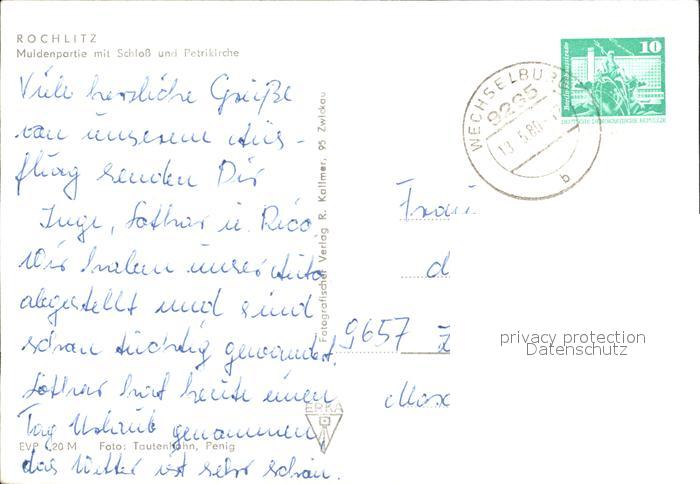 ROCHLITZ
Muldenpartie mit Schloß und Petrikirche
Viele herzliche Grüße
von unserem Aus-
flug senden Dir
Inge, Lothar u. Rico
Wir haben unser Auto
abgestellt und sind
schon tüchtig gewandert.
Lothar hat heute einen
Tag Urlaub genommen,
das Wetter ist sehr schön.
EVP -,20 M Foto: Tautenhahn, Penig
Fotografischer Verlag R. Kallmer, 95 Zwickau
ERKA
10
Berlin, Rathausstraße
DEUTSCHE DEMOKRATISCHE REPUBLIK
WECHSELBURG
9295
13.5.80
b
Frau
9657
privacy protection
Datenschutz